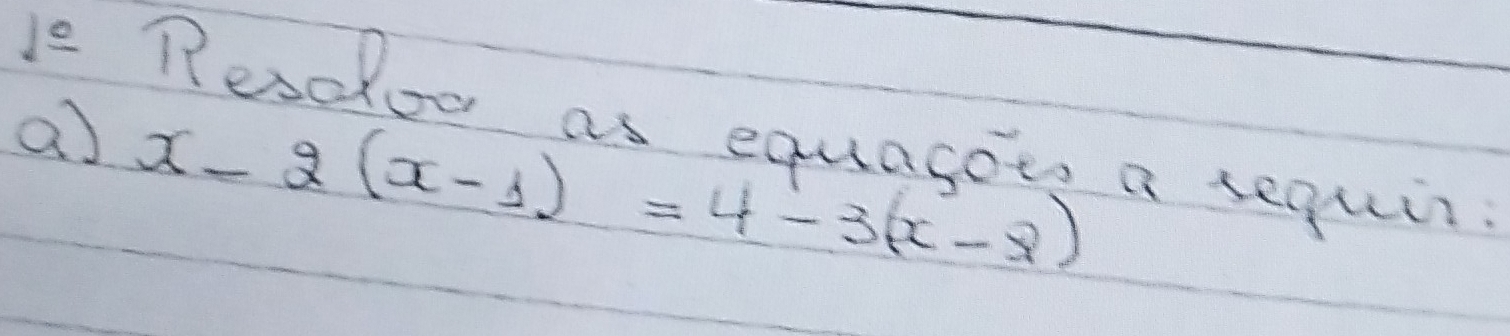 1º Resolva as equações a seguir:
a) x - 2 (x - 1) = 4 - 3(x - 2)